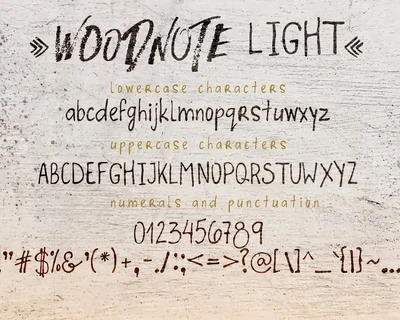 WOODNOTE LIGHT
lowercase characters
abcdefghijklmnopqrstuwxyz
uppercase characters
ABCDEFGHIJKLMNOPQRSTUWXYZ
numerals and punctuation
0123456789
"#$%&'(*)+,-./:;<=>?@[\]^_`{|}~...